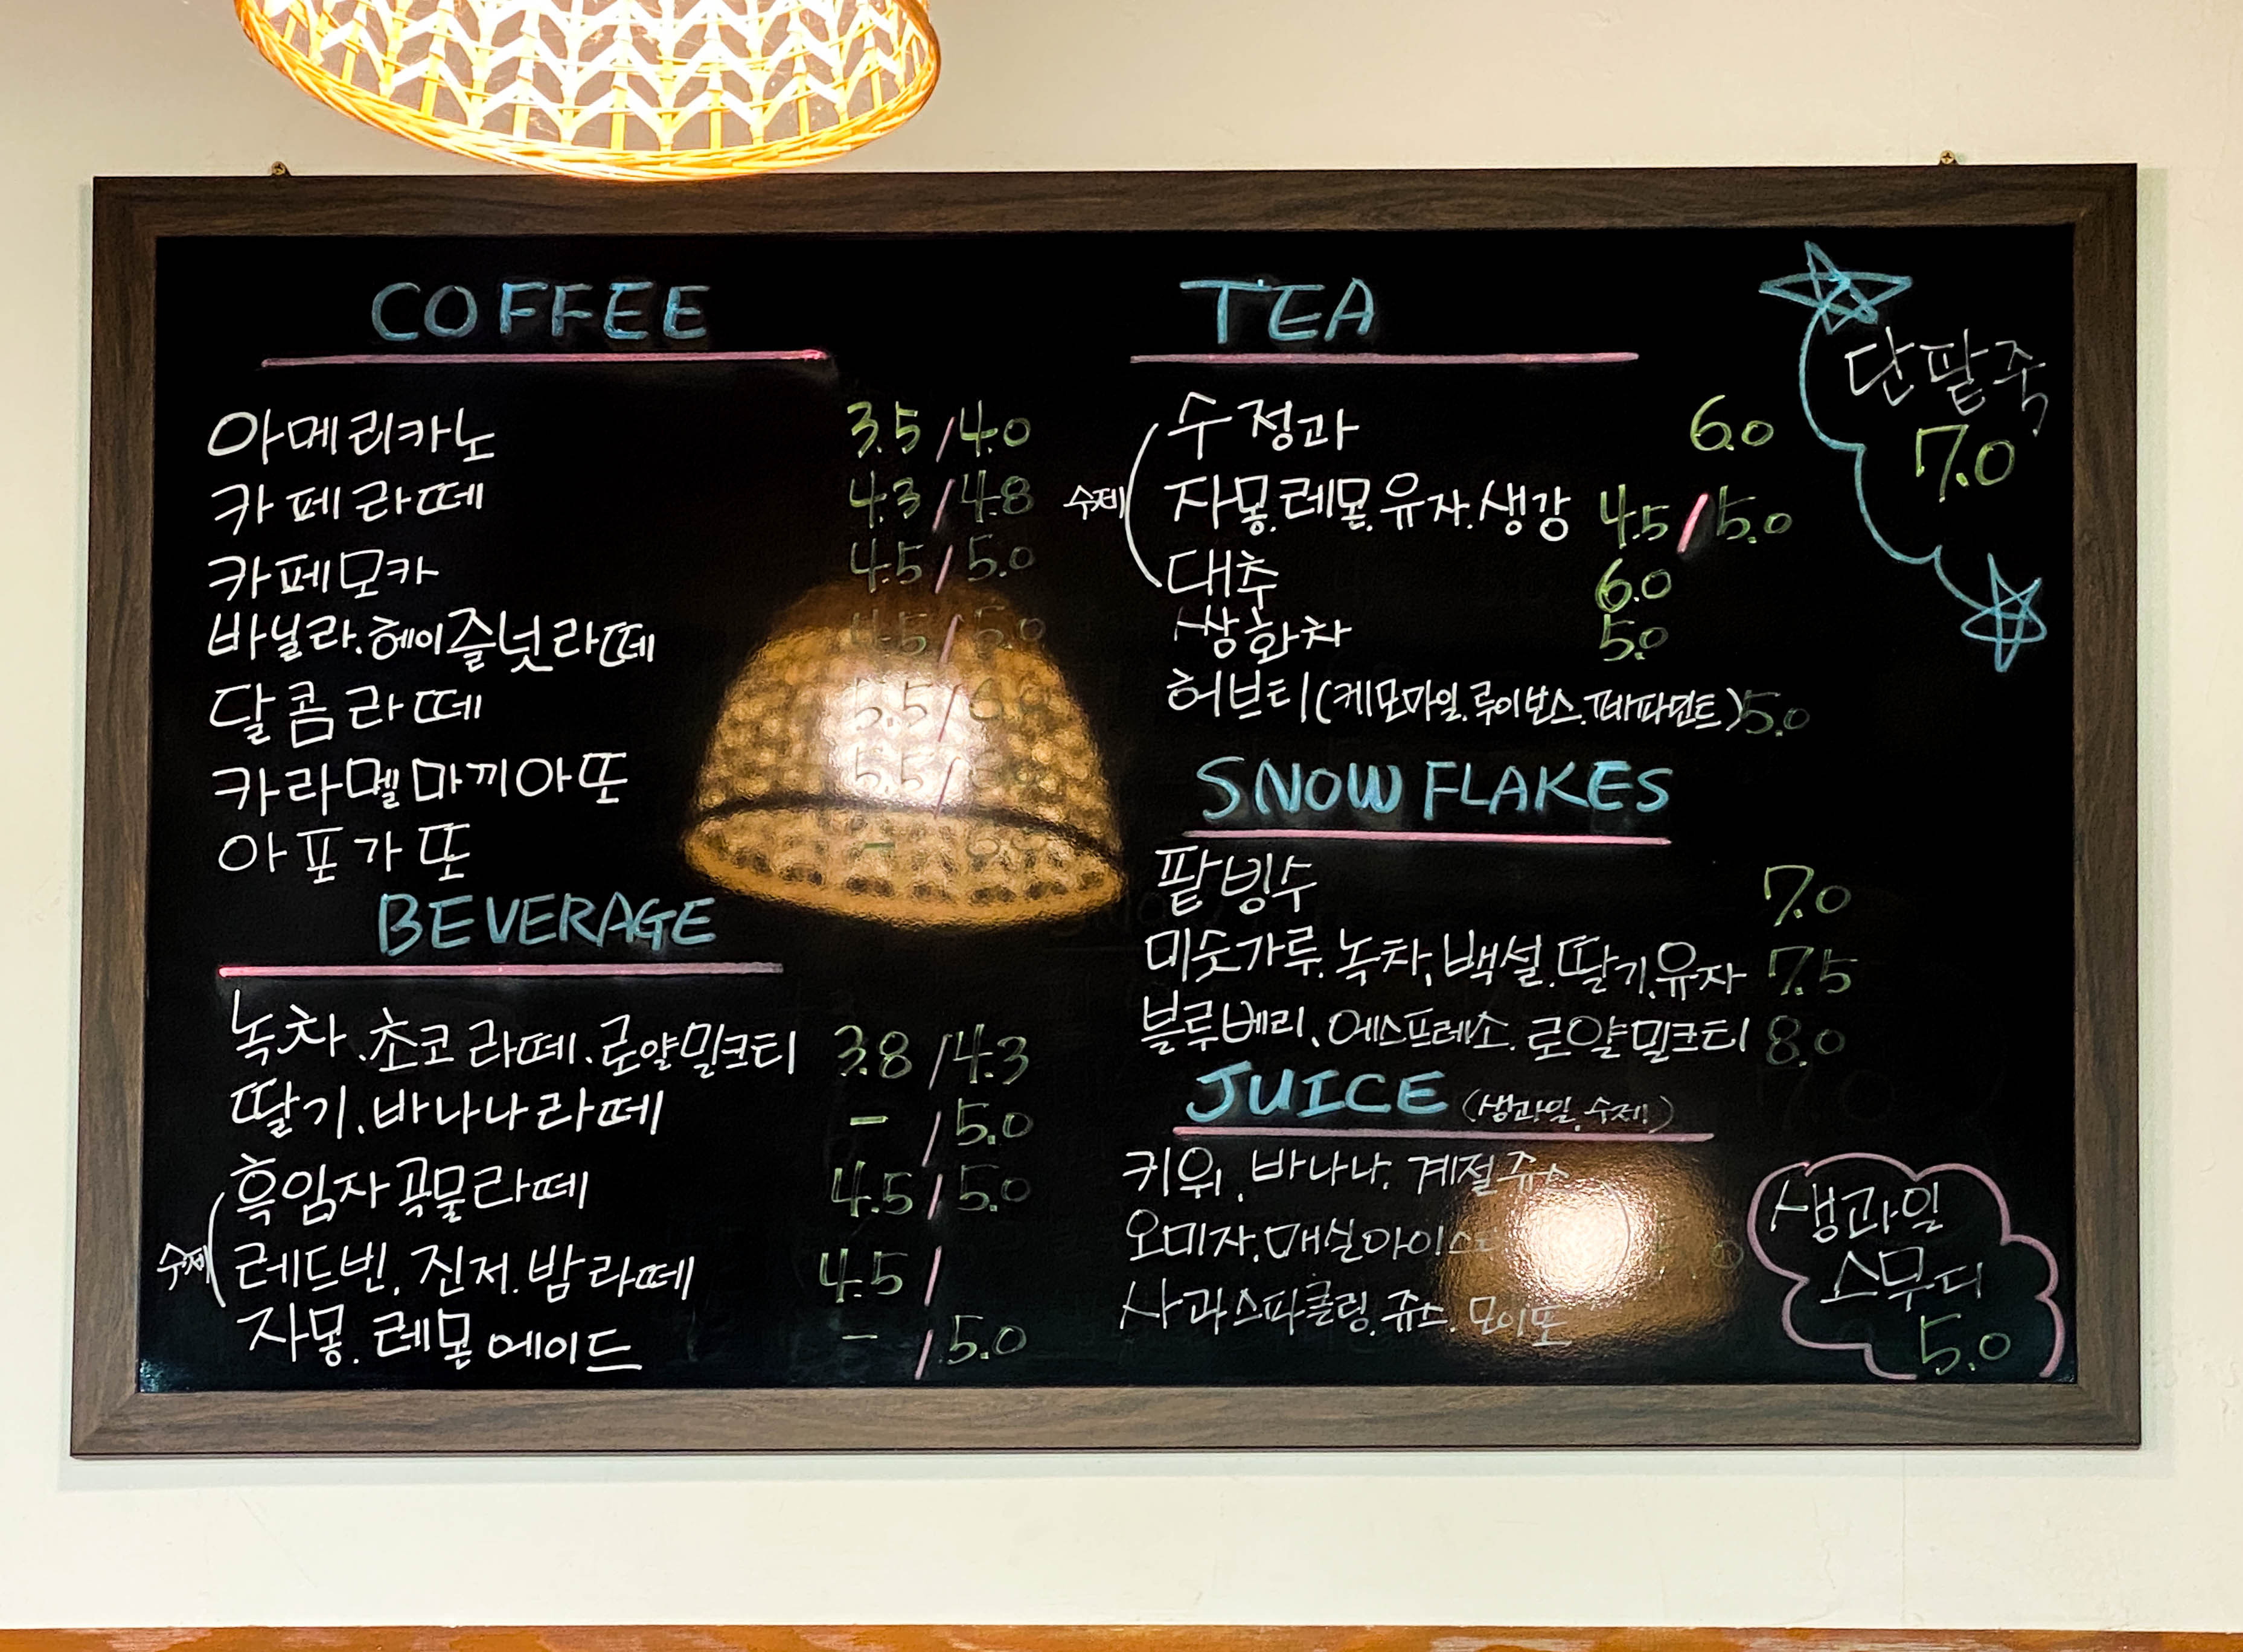 COFFEE
아메리카노 3.5/4.0
카페라떼 4.3/4.8
카페모카 4.5/5.0
바닐라.헤이즐넛라떼 4.5/5.0
달콤라떼 5.5/
카라멜마끼아또 5.5/
아포가또 -
BEVERAGE
녹차.초코라떼.로얄밀크티 3.8/4.3
딸기.바나나라떼 - /5.0
수제
흑임자곡물라떼 4.5/5.0
레드빈.진저.밤라떼 4.5/
자몽.레몬에이드 - /5.0
TEA
수제
수정과 6.0
자몽.레몬.유자.생강 4.5/5.0
대추 6.0
쌍화차 5.0
허브티(케모마일.루이보스.페파민트) 5.0
SNOW FLAKES
팥빙수 7.0
미숫가루.녹차.백설.딸기.유자 7.5
블루베리.에스프레소.로얄밀크티 8.0
JUICE (생과일.수제)
키위.바나나.계절쥬스
오미자.매실아이스티
사과스파클링.쥬스.모이또
단팥죽
7.0
생과일
스무디
5.0